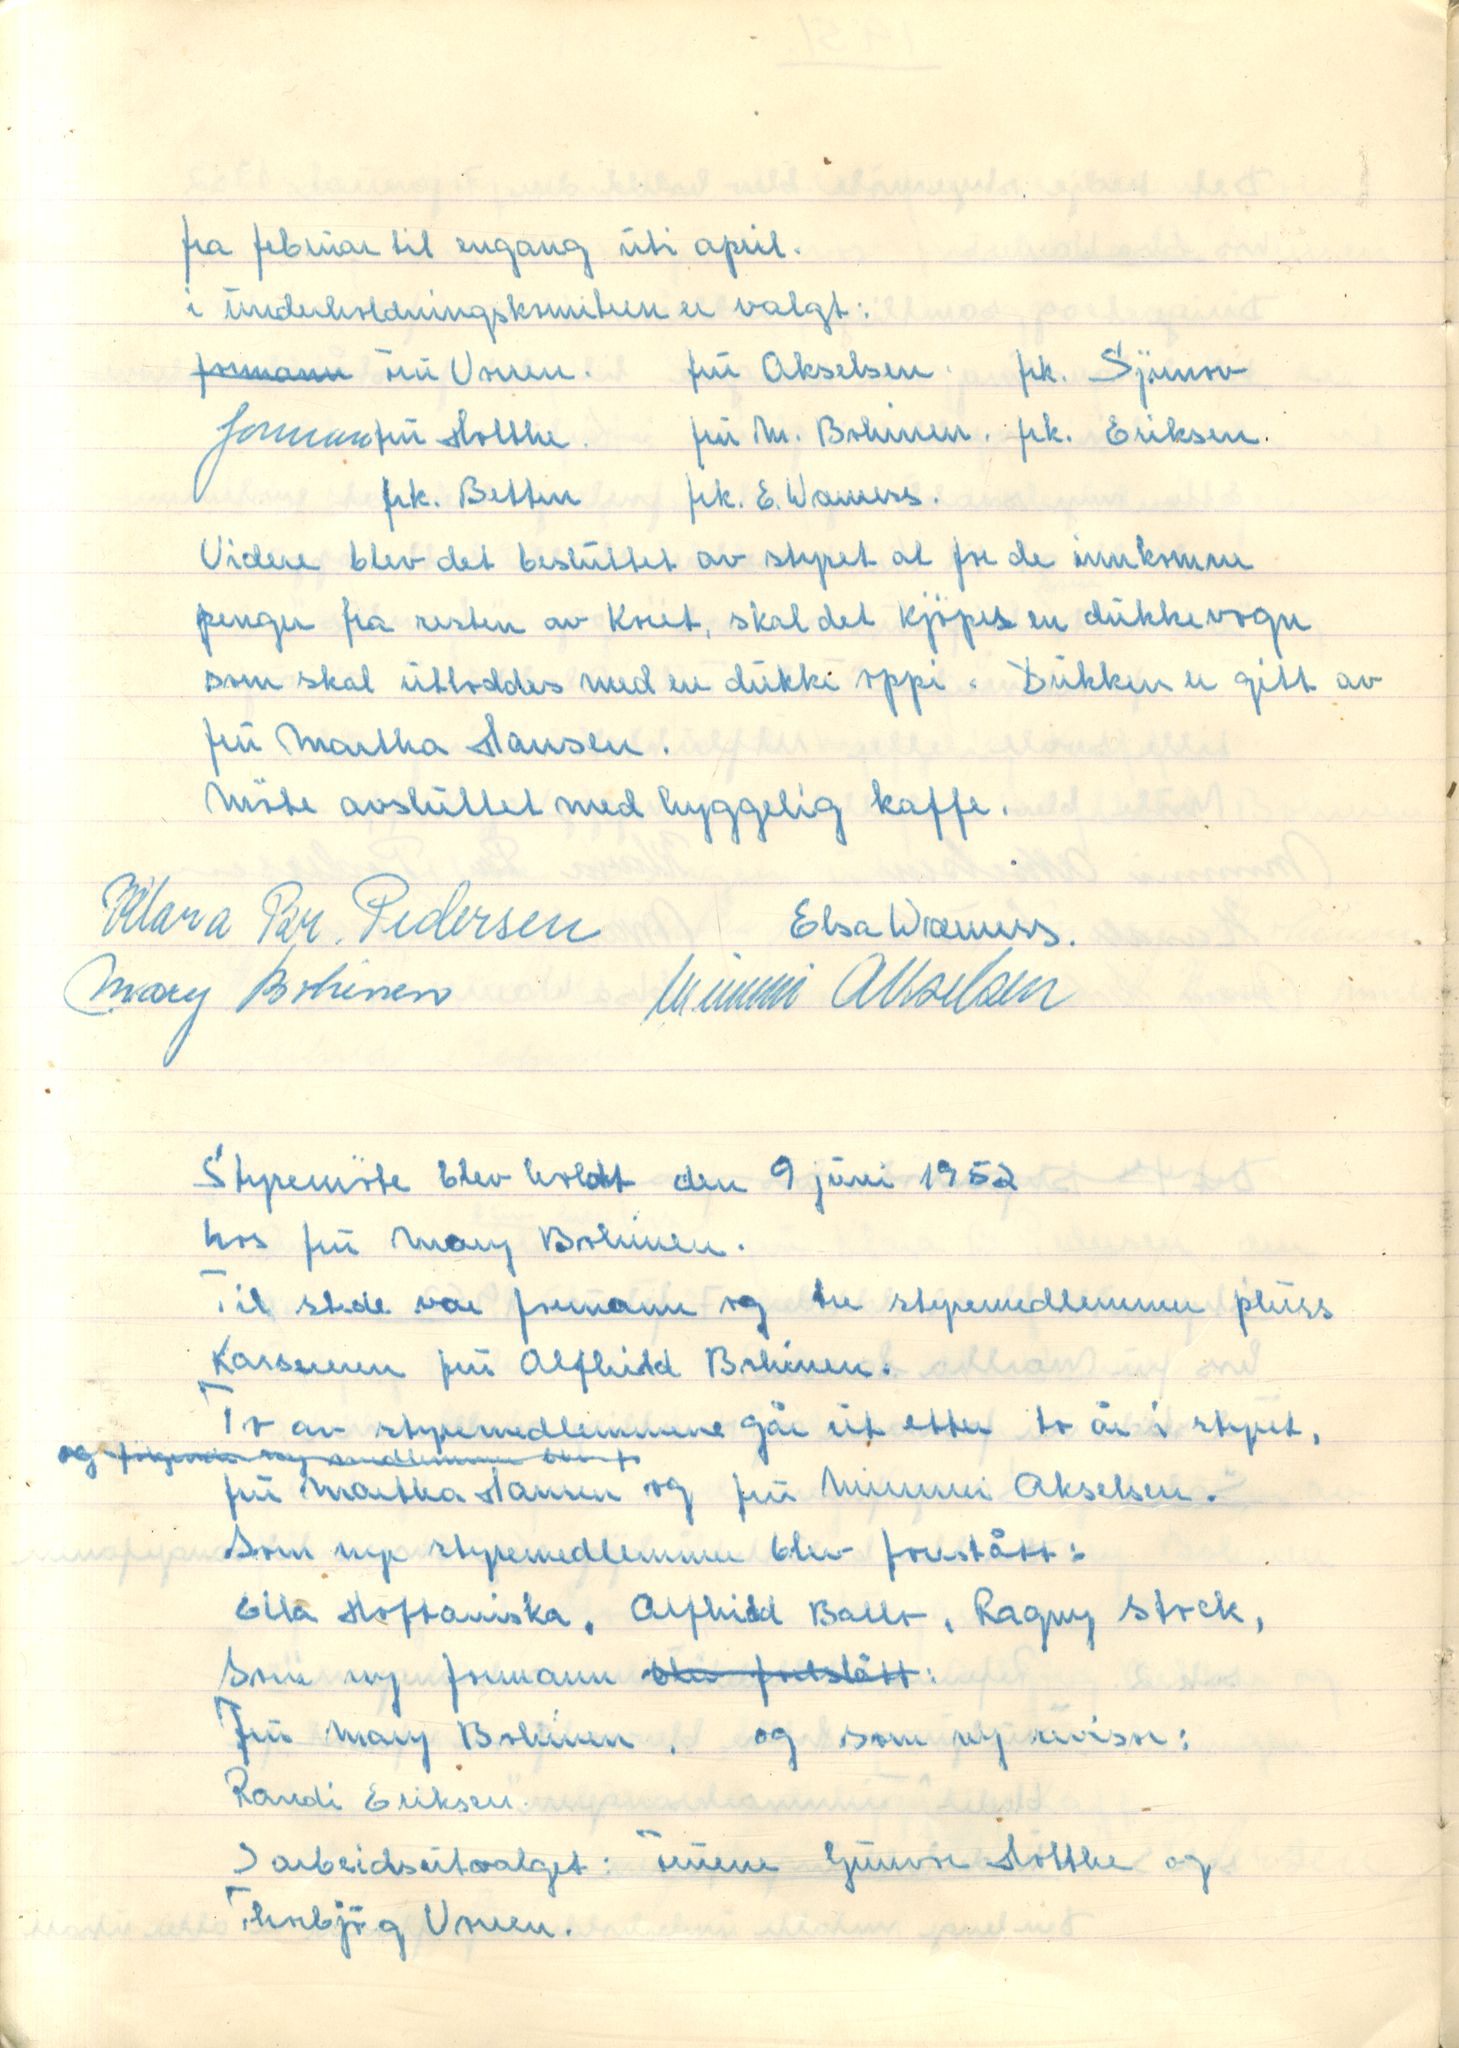 fra februar til engang uti april.
i underholdningskomiteen er valgt:
formann fru Vonen. fru Akselsen. frk. Sjönov
formann fru Holthe. fru M. Bohinen. frk. Eriksen.
frk. Betten frk. E. Wamers.
Videre blev det besluttet av styret at for de innkomne
penger fra resten av Koret, skal det kjöpes en dukkevogn
som skal utloddes med en dukke oppi. Dukken er gitt av
fru Martha Hansen.
Möte avsluttet med hyggelig kaffe.
Klara Per. Pedersen Elsa Wamers.
Mary Bohinen Mimmi Akselsen
Styremöte blev holdt den 9 juni 1952
hos fru Mary Bohinen.
Til stede var formann og tre styremedlemmer pluss
Kasseren fru Alfhild Bohinen.
To av styremedlemmene går ut etter to år i styret,
og ny medlemmer blev
fru Martha Hansen og fru Mimmi Akselsen.
Som nye styremedlemmer blev forestått:
Ella Hoftaniska, Alfhild Ballo, Ragny Stock,
Som ny formann blev forestått:
Fru Mary Bohinen, og som ny revisor:
Randi Eriksen.
I arbeidsutvalget: fruene Gunvor Holthe og
Thorbjörg Vonen.